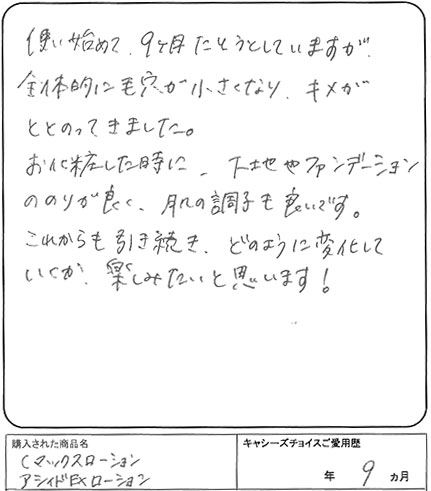 使い始めて、9ヶ月たとうとしていますが、
全体的に毛穴が小さくなり、キメが
ととのってきました。
お化粧した時に、下地やファンデーション
ののりが良く、肌の調子も良いです。
これからも引き続き、どのように変化して
いくか、楽しみたいと思います！
購入された商品名
Cマックスローション
アシィドEXローション
キャシーズチョイスご愛用歴
年 9 カ月